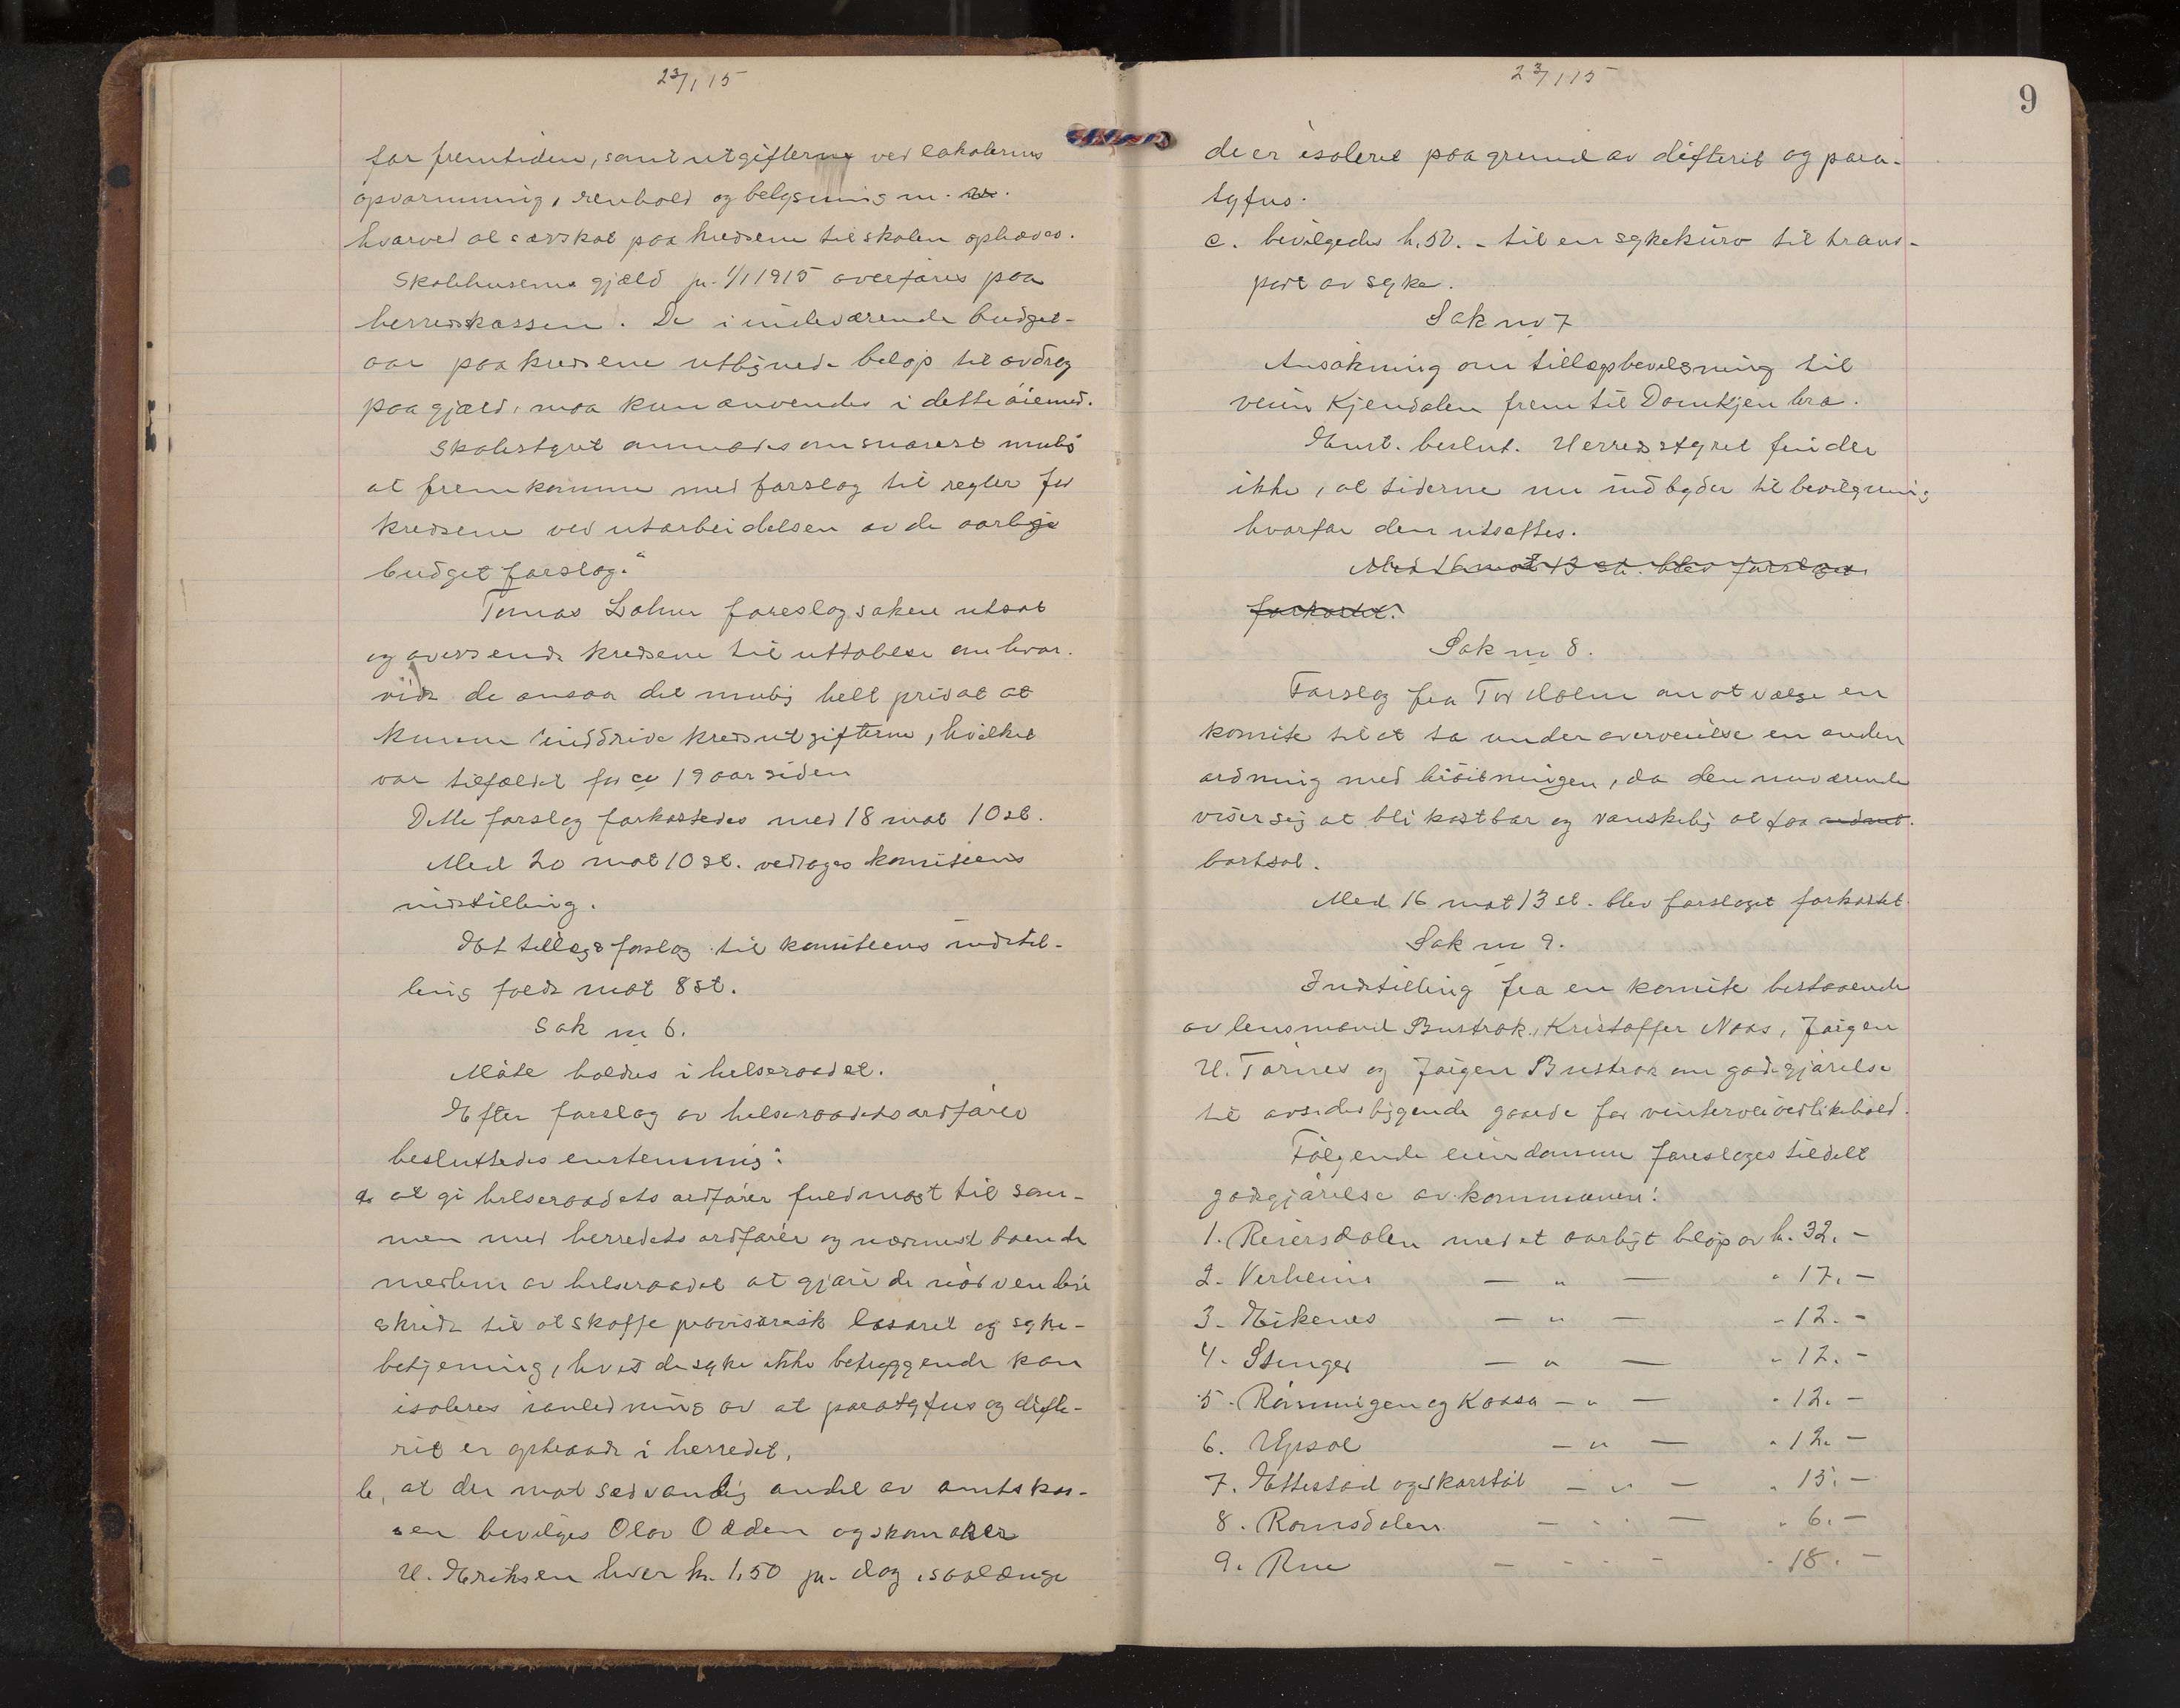 23/1 15
for fremtiden, samt utgifterne ved lokalernes
opvarmning, renhold og belysning m. m.
hvorved al særskat paa kredsene til skolen ophæves.
Skolehusenes gjæld pr. 1/1 1915 overføres paa
herredskassen. De i indeværende budget-
aar paa kredsene utlignede beløp til avdrag
paa gjæld, maa kun anvendes i dette øiemed.
Skolestyret anmodes om snarest mulig
at fremkomme med forslag til regler for
kredsene ved utarbeidelsen av de aarlige
budget forslag."
Tomas Lolim foreslog saken utsat
og oversende kredsene til uttalelse om hvor-
vidt de ansaa det mulig helt privat at
kunne inddrive kredsutgifterne, hvilket
var tilfældet for ca 19 aar siden
Dette forslag forkastedes med 18 mot 10 st.
Med 20 mot 10 st. vedtages komiteens
indstilling.
Et tillægsforslag til komiteens indstil-
ling faldt mot 8 st.
Sak nr 6.
Møte holdes i helseraadet.
Efter forslag av helseraadets ordfører
besluttedes enstemmig:
a. at gi helseraadets ordfører fuldmagt til sam-
men med herredets ordfører og nærmest boende
medlem av helseraadet at gjøre de nødvendige
skridt til at skaffe provisorisk lasaret og syke-
betjening, hvis de syke ikke betryggende kan
isoleres i anledning av at paratyfus og difte-
rit er opstaadt i herredet.
b. at der mot sædvanlig andel av amtskas-
sen bevilges Olav Odden og skomaker
H. Eriksen hver kr. 1,50 pr. dag, saalænge
23/1 15
9
de er isoleret paa grund av difterit og para-
tyfus.
c. bevilgedes kr. 50.- til en sykekurv til trans-
port av syke.
Sak nr 7
Ansøkning om tillægsbevilgning til
veien Kjendalen frem til Domkjen bro.
Enst. beslut. Herredsstyret finder
ikke, at tiderne nu indbyder til bevilgning
hvorfor den utsættes.
Med 16 mot 13 st. blev forslaget
forkastet.
Sak nr 8.
Forslag fra Tov Holm om at vælge en
komite til at ta under overveielse en anden
ordning med brøitningen, da den nuværende
viser sig at bli kostbar og vanskelig at faa
bortsat.
Med 16 mot 13 st. blev forslaget forkastet.
Sak nr 9.
Indstilling fra en komite bestaaende
av lensmand Bustrak, Kristoffer Naas, Jørgen
H. Tørnes og Jørgen Bustrak om godtgjørelse
til avsidesliggende gaarde for vinterveivedlikehold.
Følgende eiendomme foreslages tildelt
godtgjørelse av kommunen:
1. Reiersdalen med et aarligt beløp av kr. 32.-
2. Verheim — " — " 17.-
3. Eikenes — " — " 12.-
4. Stenger — " — " 12.-
5. Rønningen og Kaasa — " — " 12.-
6. Upsal — " — " 12.-
7. Ettestad og Skarstøl — " — " 15.-
8. Romsdalen — " — " 6.-
9. Rue — " — " 18.-